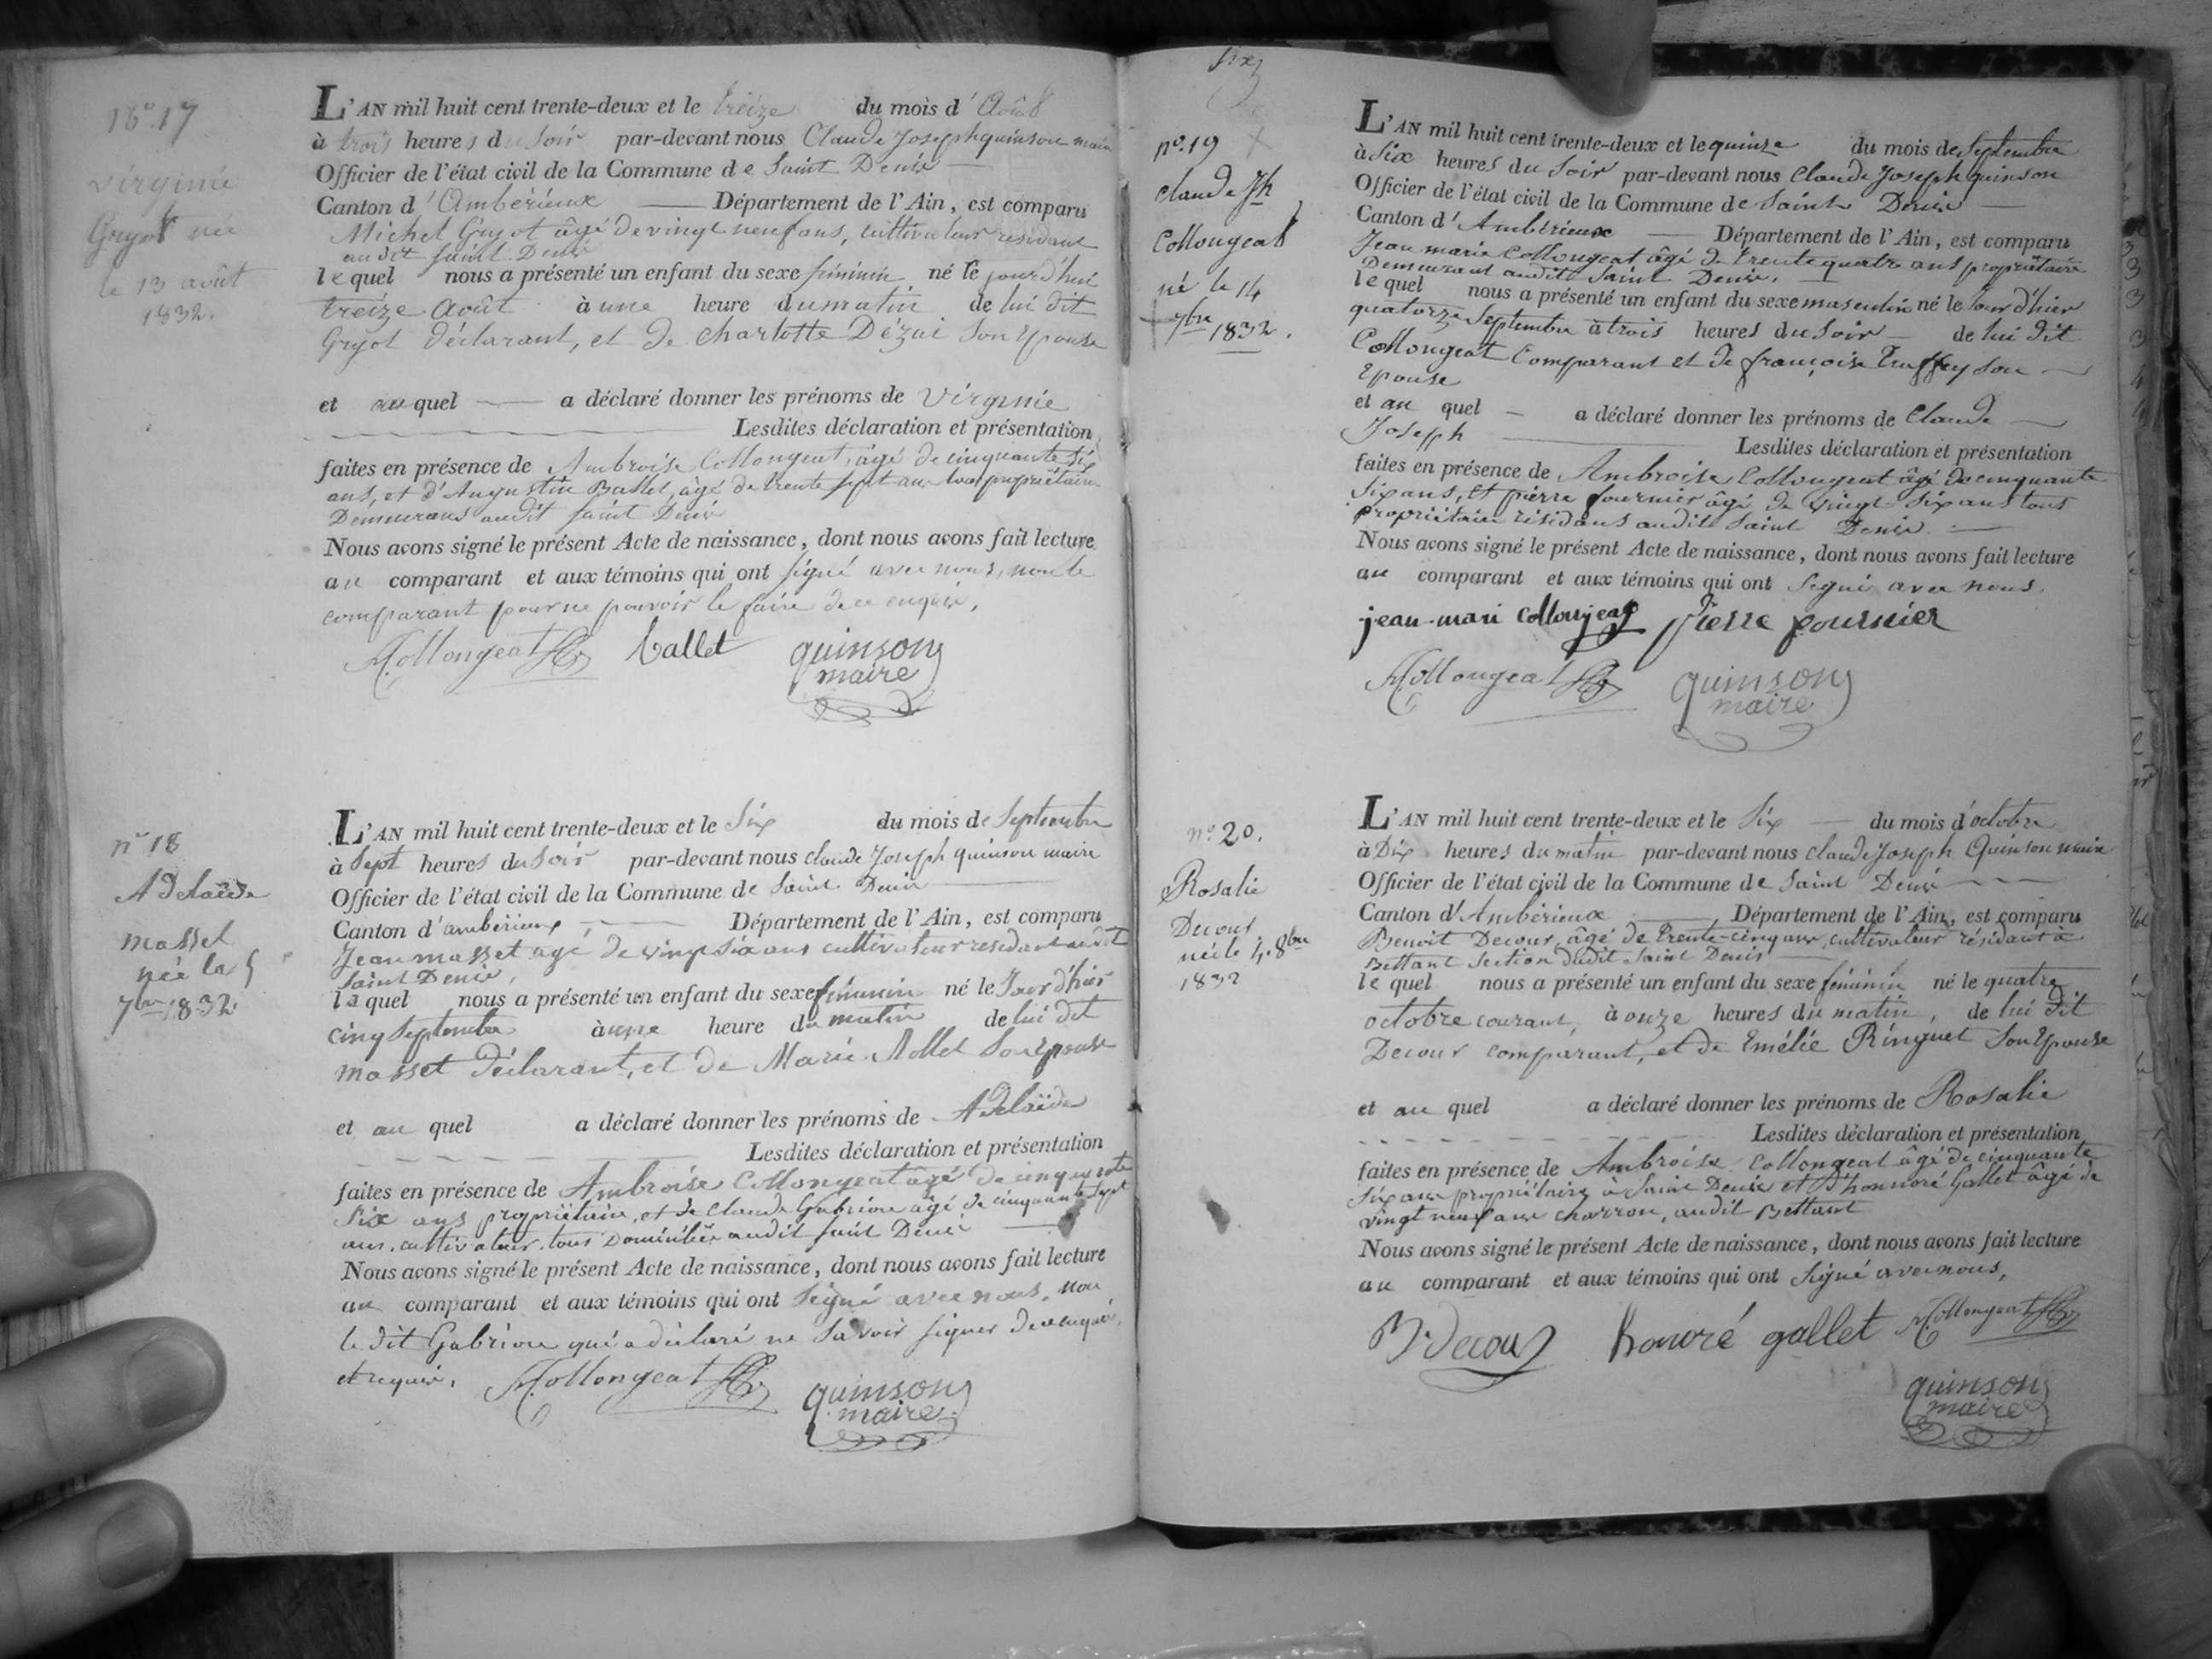 N° 17
Virginie
Guyot née
le 13 août
1832.
L'AN mil huit cent trente-deux et le treize du mois d'Août
à trois heures du soir par-devant nous Claude Joseph quinson maire
Officier de l'état civil de la Commune de Saint Denis
Canton d'Ambérieux Département de l'Ain, est comparu
Michel Guyot âgé de vingt neuf ans, cultivateur résidant
audit saint Denis
lequel nous a présenté un enfant du sexe féminin né le jourd'hui
treize Août à une heure du matin de lui dit
Guyot déclarant, et de Charlotte Dézai son Epouse
et au quel a déclaré donner les prénoms de Virginie
Lesdites déclaration et présentation
faites en présence de Ambroise Collongeat, âgé de cinquante six
ans, et d'Augustin Ballet, âgé de trente sept ans tous propriétaires
Demeurans audit saint Denis
Nous avons signé le présent Acte de naissance, dont nous avons fait lecture
au comparant et aux témoins qui ont signé avec nous, non le
comparant pour ne pouvoir le faire de ce enquis.
A. Collongeat ballet quinson
maire
n° 18
Adelaïde
Masset
née la 5
7bre 1832.
L'AN mil huit cent trente-deux et le Six du mois de Septembre
à Sept heures du Soir par-devant nous Claude Joseph quinson maire
Officier de l'état civil de la Commune de Saint Denis
Canton d'ambérieux, Département de l'Ain, est comparu
Jean Masset agé de vingt six ans cultivateur residant audit
Saint Denis,
laquel nous a présenté un enfant du sexe féminin né le Jour d'hier
cinq Septembre à une heure du matin de lui dit
Masset déclarant, et de Marie Rollet Son Epouse
et au quel a déclaré donner les prénoms de Adelaïde
Lesdites déclaration et présentation
faites en présence de Ambroise Collongeat âgé de cinquante
Six ans propriétaire, et de Claude Gabrion âgé de cinquante Sept
ans, cultivateur, tous Domiciliés audit saint Denis
Nous avons signé le présent Acte de naissance, dont nous avons fait lecture
au comparant et aux témoins qui ont Signé avec nous, non
le dit Gabrion qui a déclaré ne Savoir signer de ce enquis,
et requis. A. Collongeat quinson
maire
Six
n°. 19
Claude Jh
Collongeat
né le 14
7bre 1832.
L'AN mil huit cent trente-deux et le quinze du mois de Septembre
à Six heures du Soir par-devant nous Claude Joseph quinson
Officier de l'état civil de la Commune de Saint Denis
Canton d'Ambérieux Département de l'Ain, est comparu
Jean marie Collongeat âgé de trente quatre ans propriétaire
Demeurant audit Saint Denis,
lequel nous a présenté un enfant du sexe masculin né le Jour d'hier
quatorze Septembre à trois heures du Soir de lui dit
Collongeat Comparant et de françoise truffey son
Epouse
et au quel a déclaré donner les prénoms de Claude
Joseph Lesdites déclaration et présentation
faites en présence de Ambroise Collongeat âgé de cinquante
Six ans, et pierre fournier âgé de vingt Six ans tous
propriétaire résidans audit Saint Denis
Nous avons signé le présent Acte de naissance, dont nous avons fait lecture
au comparant et aux témoins qui ont Signé avec nous
jean-mari collonjeat Pierre fournier
A. Collongeat quinson
maire
n°. 20.
Rosalie
Decour
née le 4. 8bre
1832
L'AN mil huit cent trente-deux et le Six du mois d'octobre
à Dix heures du matin par-devant nous Claude Joseph Quinson maire
Officier de l'état civil de la Commune de Saint Denis
Canton d'Ambérieux Département de l'Ain, est comparu
Benoit Decour, âgé de trente-cinq ans, cultivateur résidant à
Bettant Section dudit Saint Denis
lequel nous a présenté un enfant du sexe féminin né le quatre
octobre courant, à onze heures du matin, de lui dit
Decour comparant, et de Emélie Ringuet Son Epouse
et au quel a déclaré donner les prénoms de Rosalie
Lesdites déclaration et présentation
faites en présence de Ambroise Collongeat âgé de cinquante
Six ans propriétaire à Saint Denis et d'honnoré Gallet âgé de
vingt neuf ans charron, audit Bettant
Nous avons signé le présent Acte de naissance, dont nous avons fait lecture
au comparant et aux témoins qui ont Signé avec nous,
B Decour honoré gallet A. Collongeat
quinson
maire